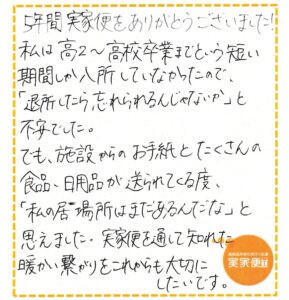 5年間実家便をありがとうございました!
私は高2〜高校卒業までという短い
期間しか入所していなかったので、
「退所したら忘れられるんじゃないか」と
不安でした。
でも、施設からのお手紙とたくさんの
食品、日用品が送られてくる度、
「私の居場所はまだあるんだな」と
思えました。実家便を通して知れた
暖かい繋がりをこれからも大切に
したいです。
実家便